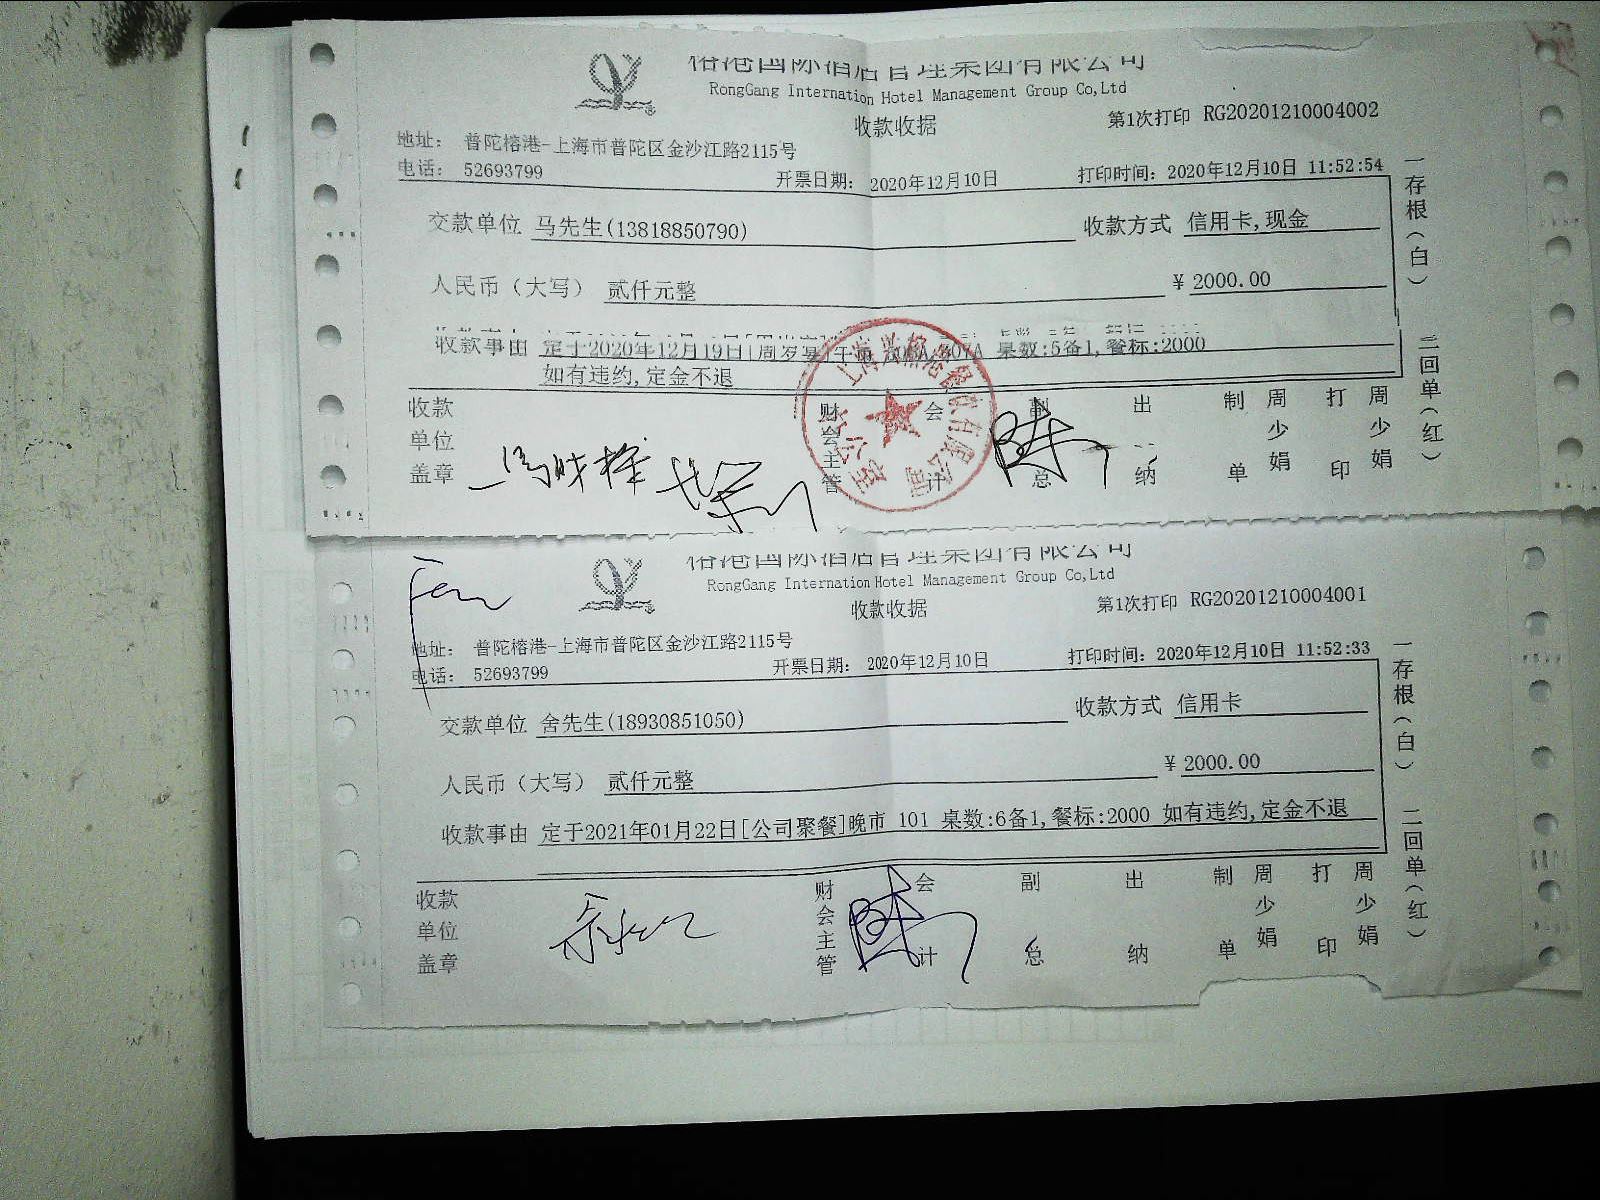 榕港国际酒店管理集团有限公司
RongGang Internation Hotel Management Group Co,Ltd
收款收据
第1次打印 RG20201210004002
地址： 普陀榕港-上海市普陀区金沙江路2115号
电话： 52693799
开票日期： 2020年12月10日
打印时间：2020年12月10日 11:52:54
交款单位 马先生(13818850790)
收款方式 信用卡,现金
人民币（大写） 贰仟元整
¥ 2000.00
收款事由 定于2020年12月19日[周岁宴]午市 桌数:5备1,餐标:2000
如有违约,定金不退
收款单位盖章
财会主管
会计
副总
出纳
制单
周少娟
打印
周少娟
一存根(白)
二回单(红)
榕港国际酒店管理集团有限公司
RongGang Internation Hotel Management Group Co,Ltd
收款收据
第1次打印 RG20201210004001
地址： 普陀榕港-上海市普陀区金沙江路2115号
电话： 52693799
开票日期： 2020年12月10日
打印时间：2020年12月10日 11:52:33
交款单位 舍先生(18930851050)
收款方式 信用卡
人民币（大写） 贰仟元整
¥ 2000.00
收款事由 定于2021年01月22日[公司聚餐]晚市 101 桌数:6备1,餐标:2000 如有违约,定金不退
收款单位盖章
财会主管
会计
副总
出纳
制单
周少娟
打印
周少娟
一存根(白)
二回单(红)